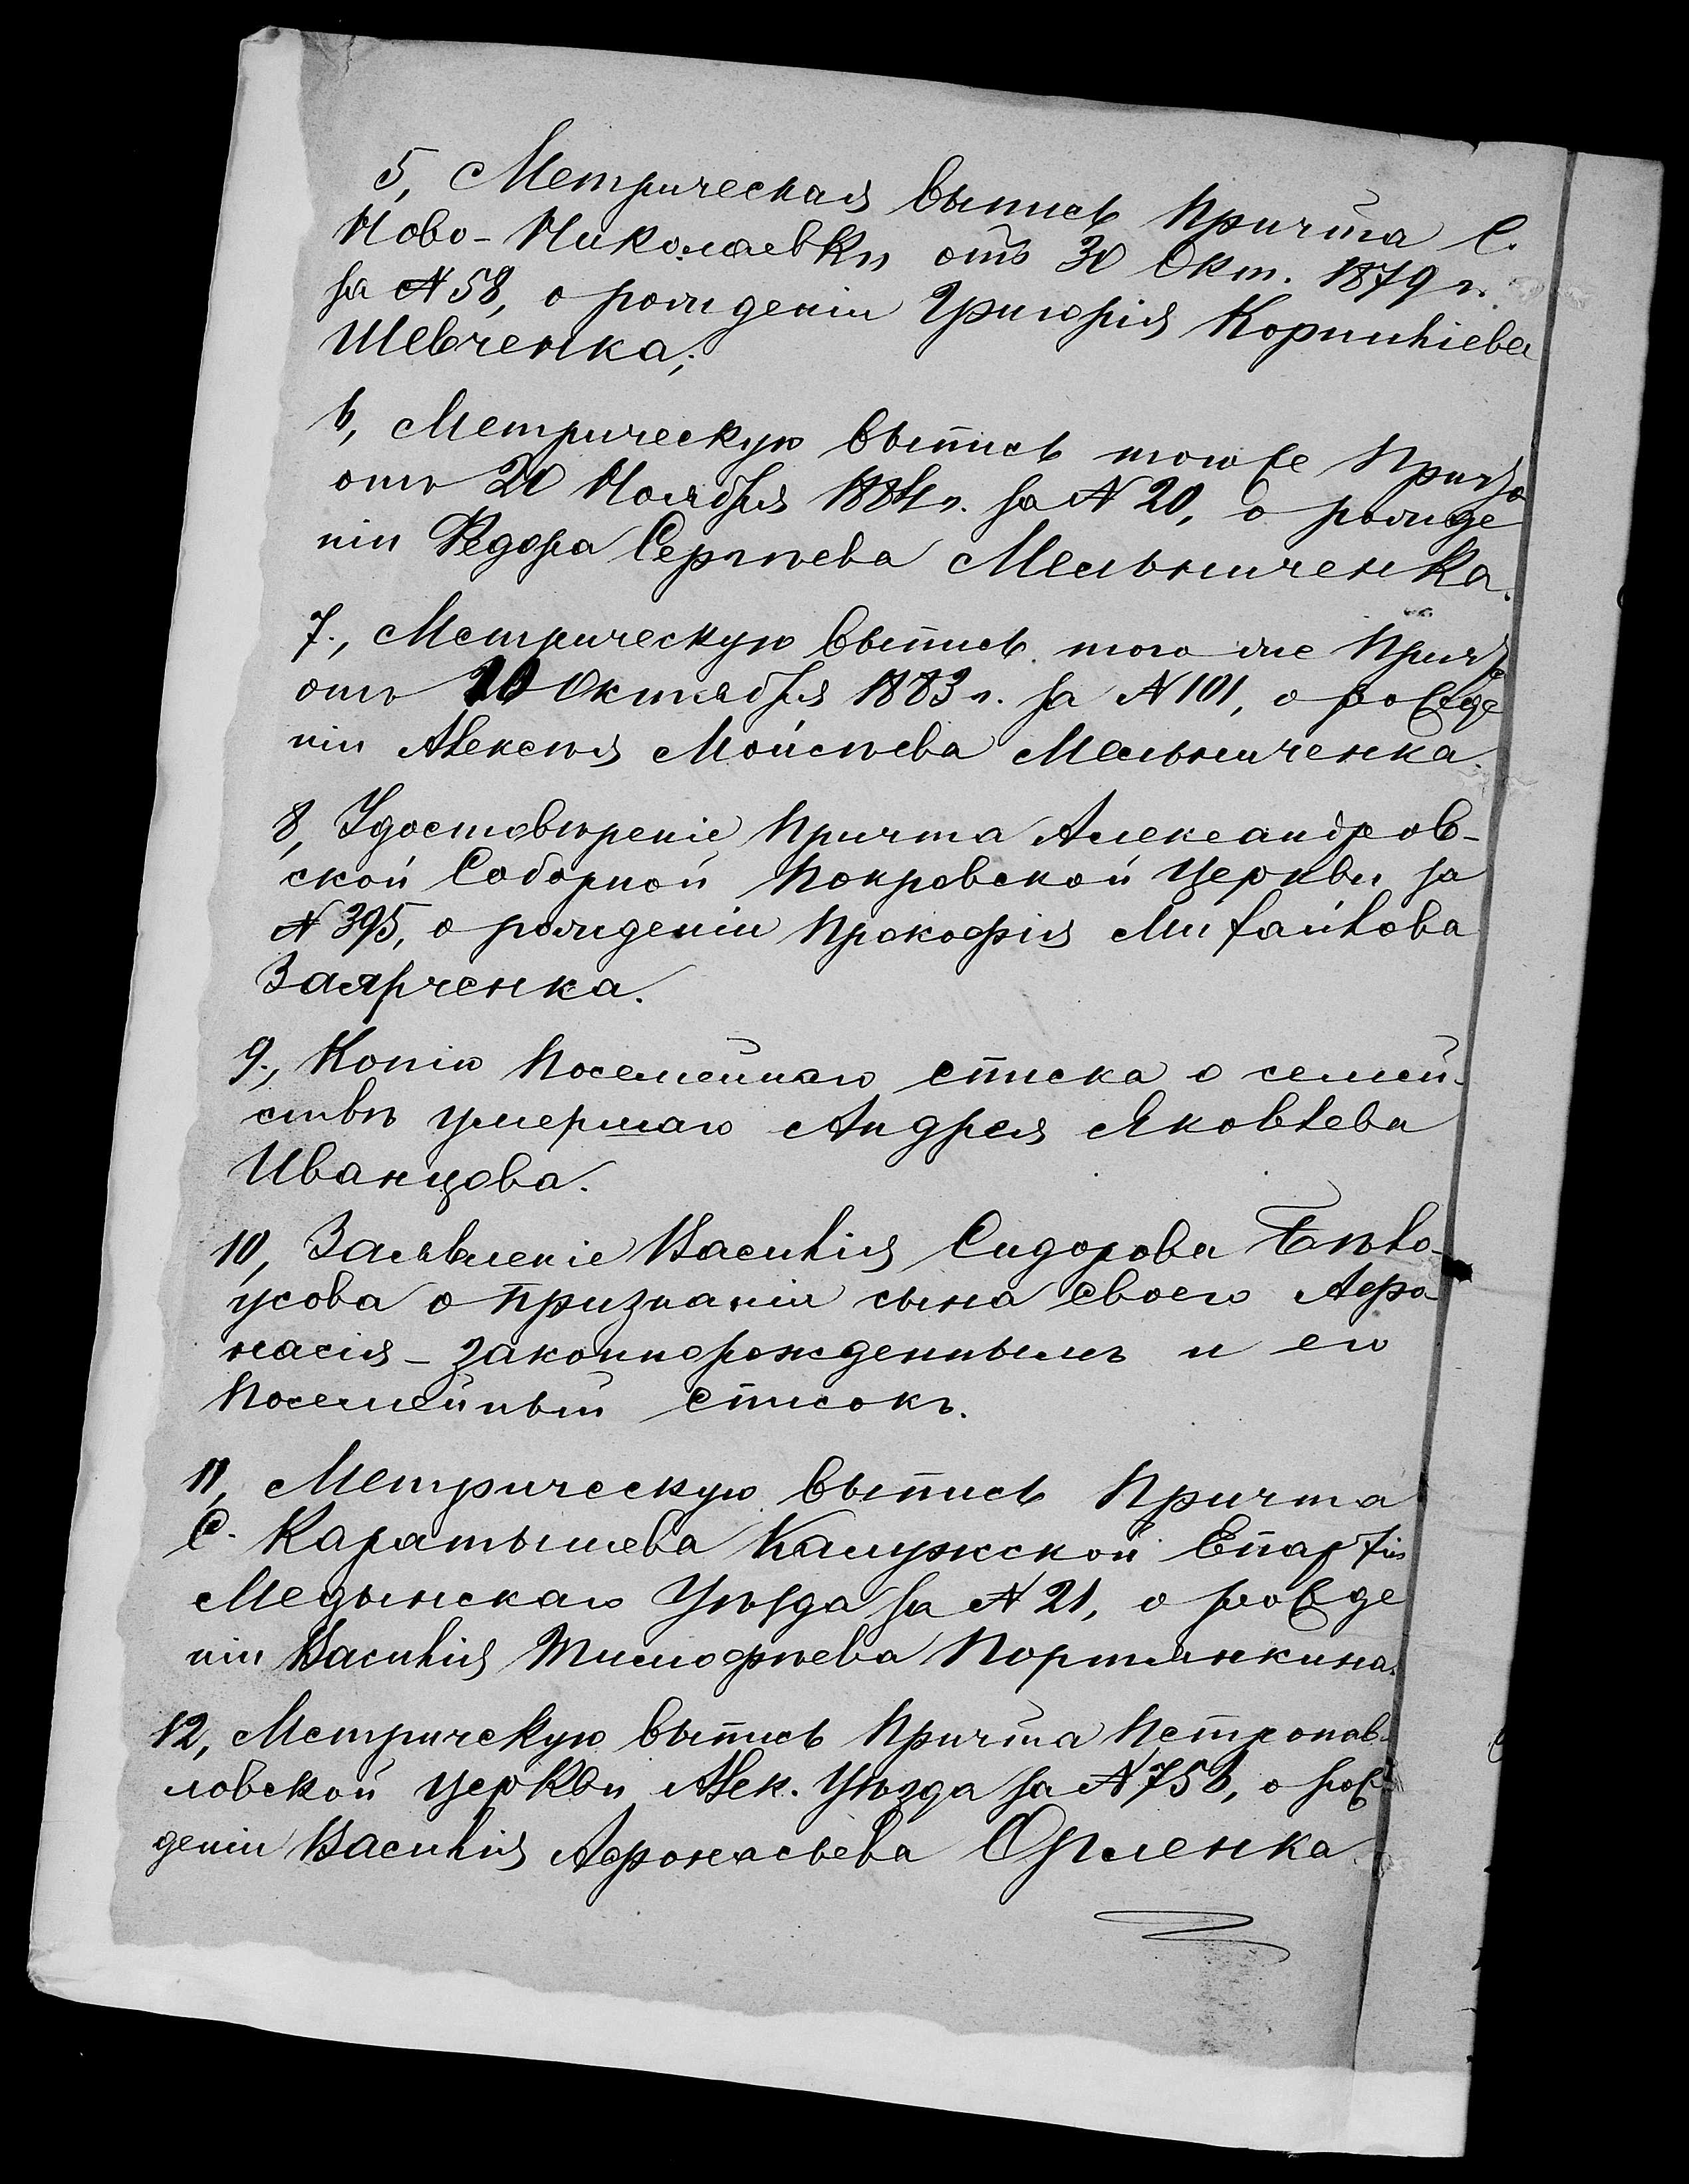 5, Метрическая выпись Причта С.
Ново-Николаевки отъ 30 Окт. 1879 г.
за № 58, о рожденіи Григорія Корниліева
Шевченка;
6, Метрическую выпись того же Причта
отъ 20 Ноября 1884 г. за № 20, о рожде
ніи Федора Сергѣева Мельниченка.
7., Метрическую выпись того же Причта
отъ 20 Октября 1883 г. за № 101, о рожде
ніи Алексѣя Мойсѣева Мельниченка.
8, Удостовѣреніе Причта Александров-
ской Соборной Покровской Церкви за
№ 395, о рожденіи Прокофія Михайлова
Заярченка.
9., Копію Посемейнаго списка о семей-
ствѣ умершаго Андрея Яковлева
Иванцова.
10, Заявленіе Василія Сидорова Бѣло-
усова о признаніи сына своего Афа-
насія - законнорожденнымъ и его
Посемейный списокъ.
11, Метрическую выпись Причта
С. Каратышева Калужской Епархіи
Медынскаго Уѣзда за № 21, о рожде
ніи Василія Тимофѣева Портянкина.
12, Метрическую выпись Причта Петропав-
ловской церкви Алек. Уѣзда за № 756, о рож-
деніи Василія Афонасьева Орленка.